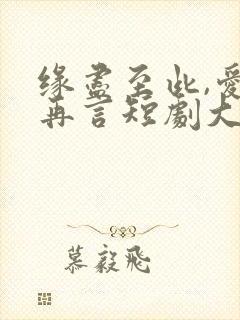 缘尽至此,爱
再言短剧大
慕毅飛